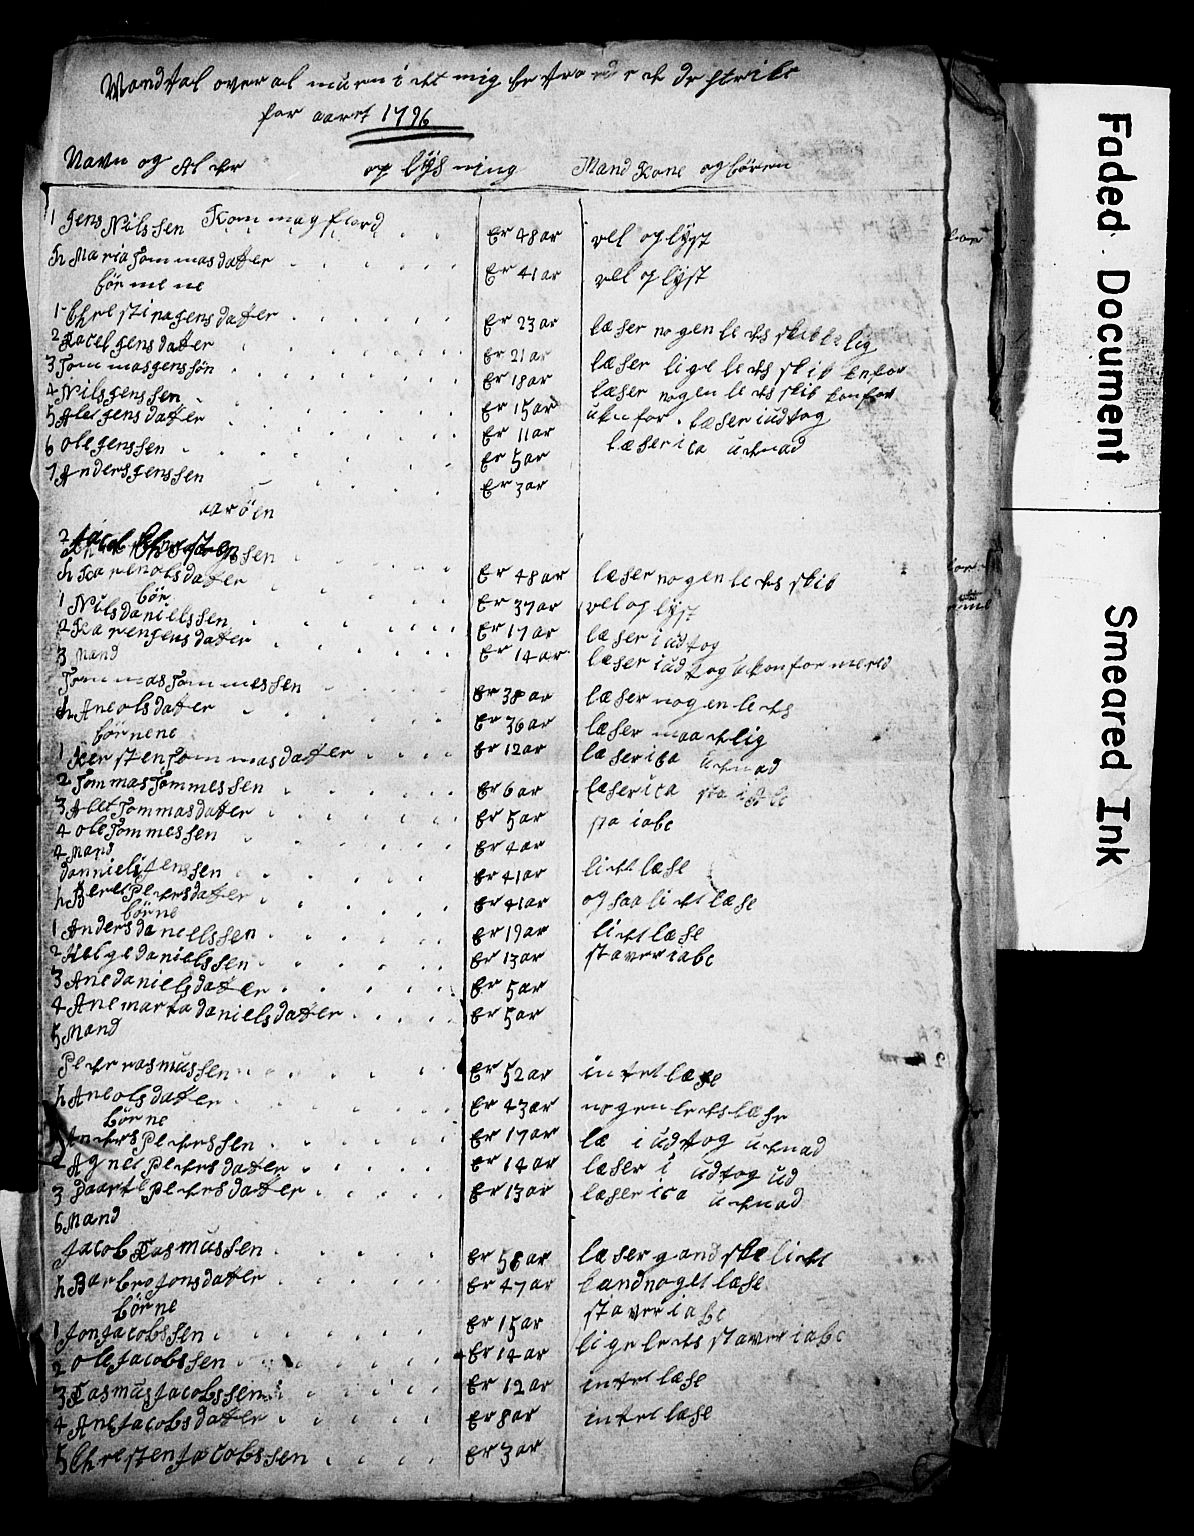 Mandtal over al muen i det mig betroede de strikt
for aaret 1796
Navn og Alder op lÿs ning Mand Kone og bören
1 Jens Nilssen Kom mag fiord Er 48 ar vel op lÿst
h Maria Tommasdatter Er 41 ar vel op lÿst
börnene
1 Christina Jensdatter Er 23 ar læser nogenledes skikkelig
2 Karel Jensdatter Er 21 ar læser ligeledes skik
3 Tommas Jenssön Er 18 ar læser nogenledes skik konfor
4 Nils Jenssen Er 15 ar ukonfor. læser i udtog
5 Alet Jensdatter Er 11 ar læser i ca udenad
6 ole Jenssen Er 5 ar
7 Anders Jenssen Er 3 ar
aaröen
2
Er 48 ar læser nogenledes skik
h Karen olsdatter Er 37 ar vel op lÿst
bör
1 Nils daniellssen Er 17 ar læser i udtog
2 Karen Jensdatter Er 14 ar læser i udtog ukonformered
3 Mand
Tommas Tommessen Er 38 ar læser nogenledes
h Ane olsdatter Er 36 ar læser maadelig
börnene
1 Kersten Tommasdatter Er 12 ar læser i ca udenad
2 Tommas Tommessen Er 6 ar læser i ca sta i abc
3 Alet Tommasdatter Er 5 ar sta i abc
4 ole Tommessen Er 4 ar
4 Mand
danniel Jenssen Er 41 ar lidt læse
h Beret Pedersdatter Er 41 ar ogsaa lidt læse
börne
1 Anders daniellssen Er 19 ar lidt læse
2 Helge danielssen Er 13 ar staver i abc
3 Ane danielsdatter Er 5 ar
4 Ane marta danielsdatter Er 5 ar
5 Mand
Peder rasmussen Er 52 ar intet læse
h Ane olsdatter Er 43 ar nogenledes læse
börne
1 Anders Pederssen Er 17 ar læ i udtog udenad
2 Agnet Pedersdatter Er 14 ar læser i udtog ud
3 Paartel Pedersdatter Er 13 ar læser i ca udenad
6 Mand
Jacob Rasmussen Er 58 ar læser gandske lidt
h Barbro Jonsdatter Er 47 ar kand noget læse
börne
1 Jon Jacobssen Er 15 ar staver i abc
2 ole Jacobssen Er 14 ar ligeledes staver i abc
3 Rasmus Jacobssen Er 12 ar intet læse
4 Ane Jacobsdatter Er 8 ar intet læse
5 Christen Jacobssen Er 3 ar
Faded Document
Smeared Ink